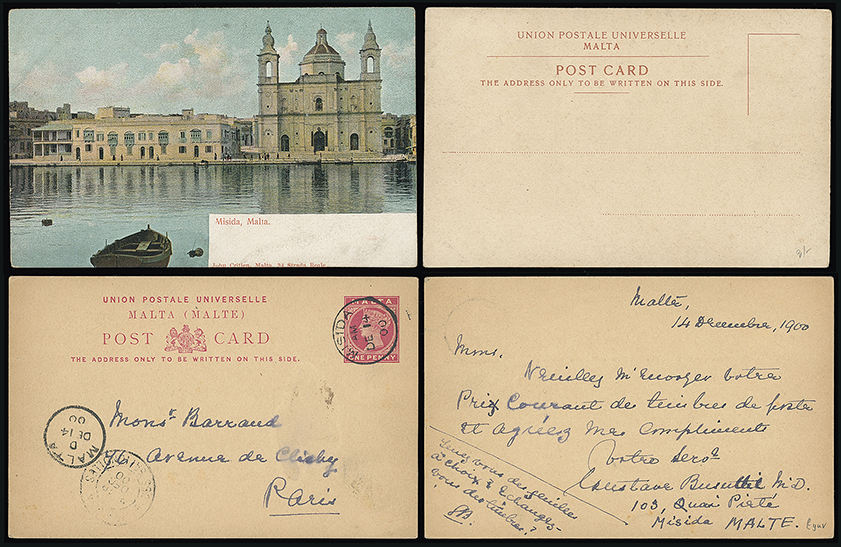 Misida, Malta.
John Critien, Malta, 34 Strada Reale
UNION POSTALE UNIVERSELLE
MALTA
POST CARD
THE ADDRESS ONLY TO BE WRITTEN ON THIS SIDE.
UNION POSTALE UNIVERSELLE
MALTA (MALTE)
POST CARD
THE ADDRESS ONLY TO BE WRITTEN ON THIS SIDE.
MALTA
ONE PENNY
MISIDA
AM
DE 14
00
MALTA
D
DE 14
00
Monsr Barraud
Avenue de Clichy
Paris
Malte,
14 Decembre, 1900
Mons.
Veuillez m'envoyer votre
Prix Courant de timbres de poste
et agréez mes compliments
Votre servr
Gustave Busuttil M.D.
103, Quai Pietà
Misida MALTE.
avez vous des feuilles
à choix & échanges-
vous des timbres?
GB